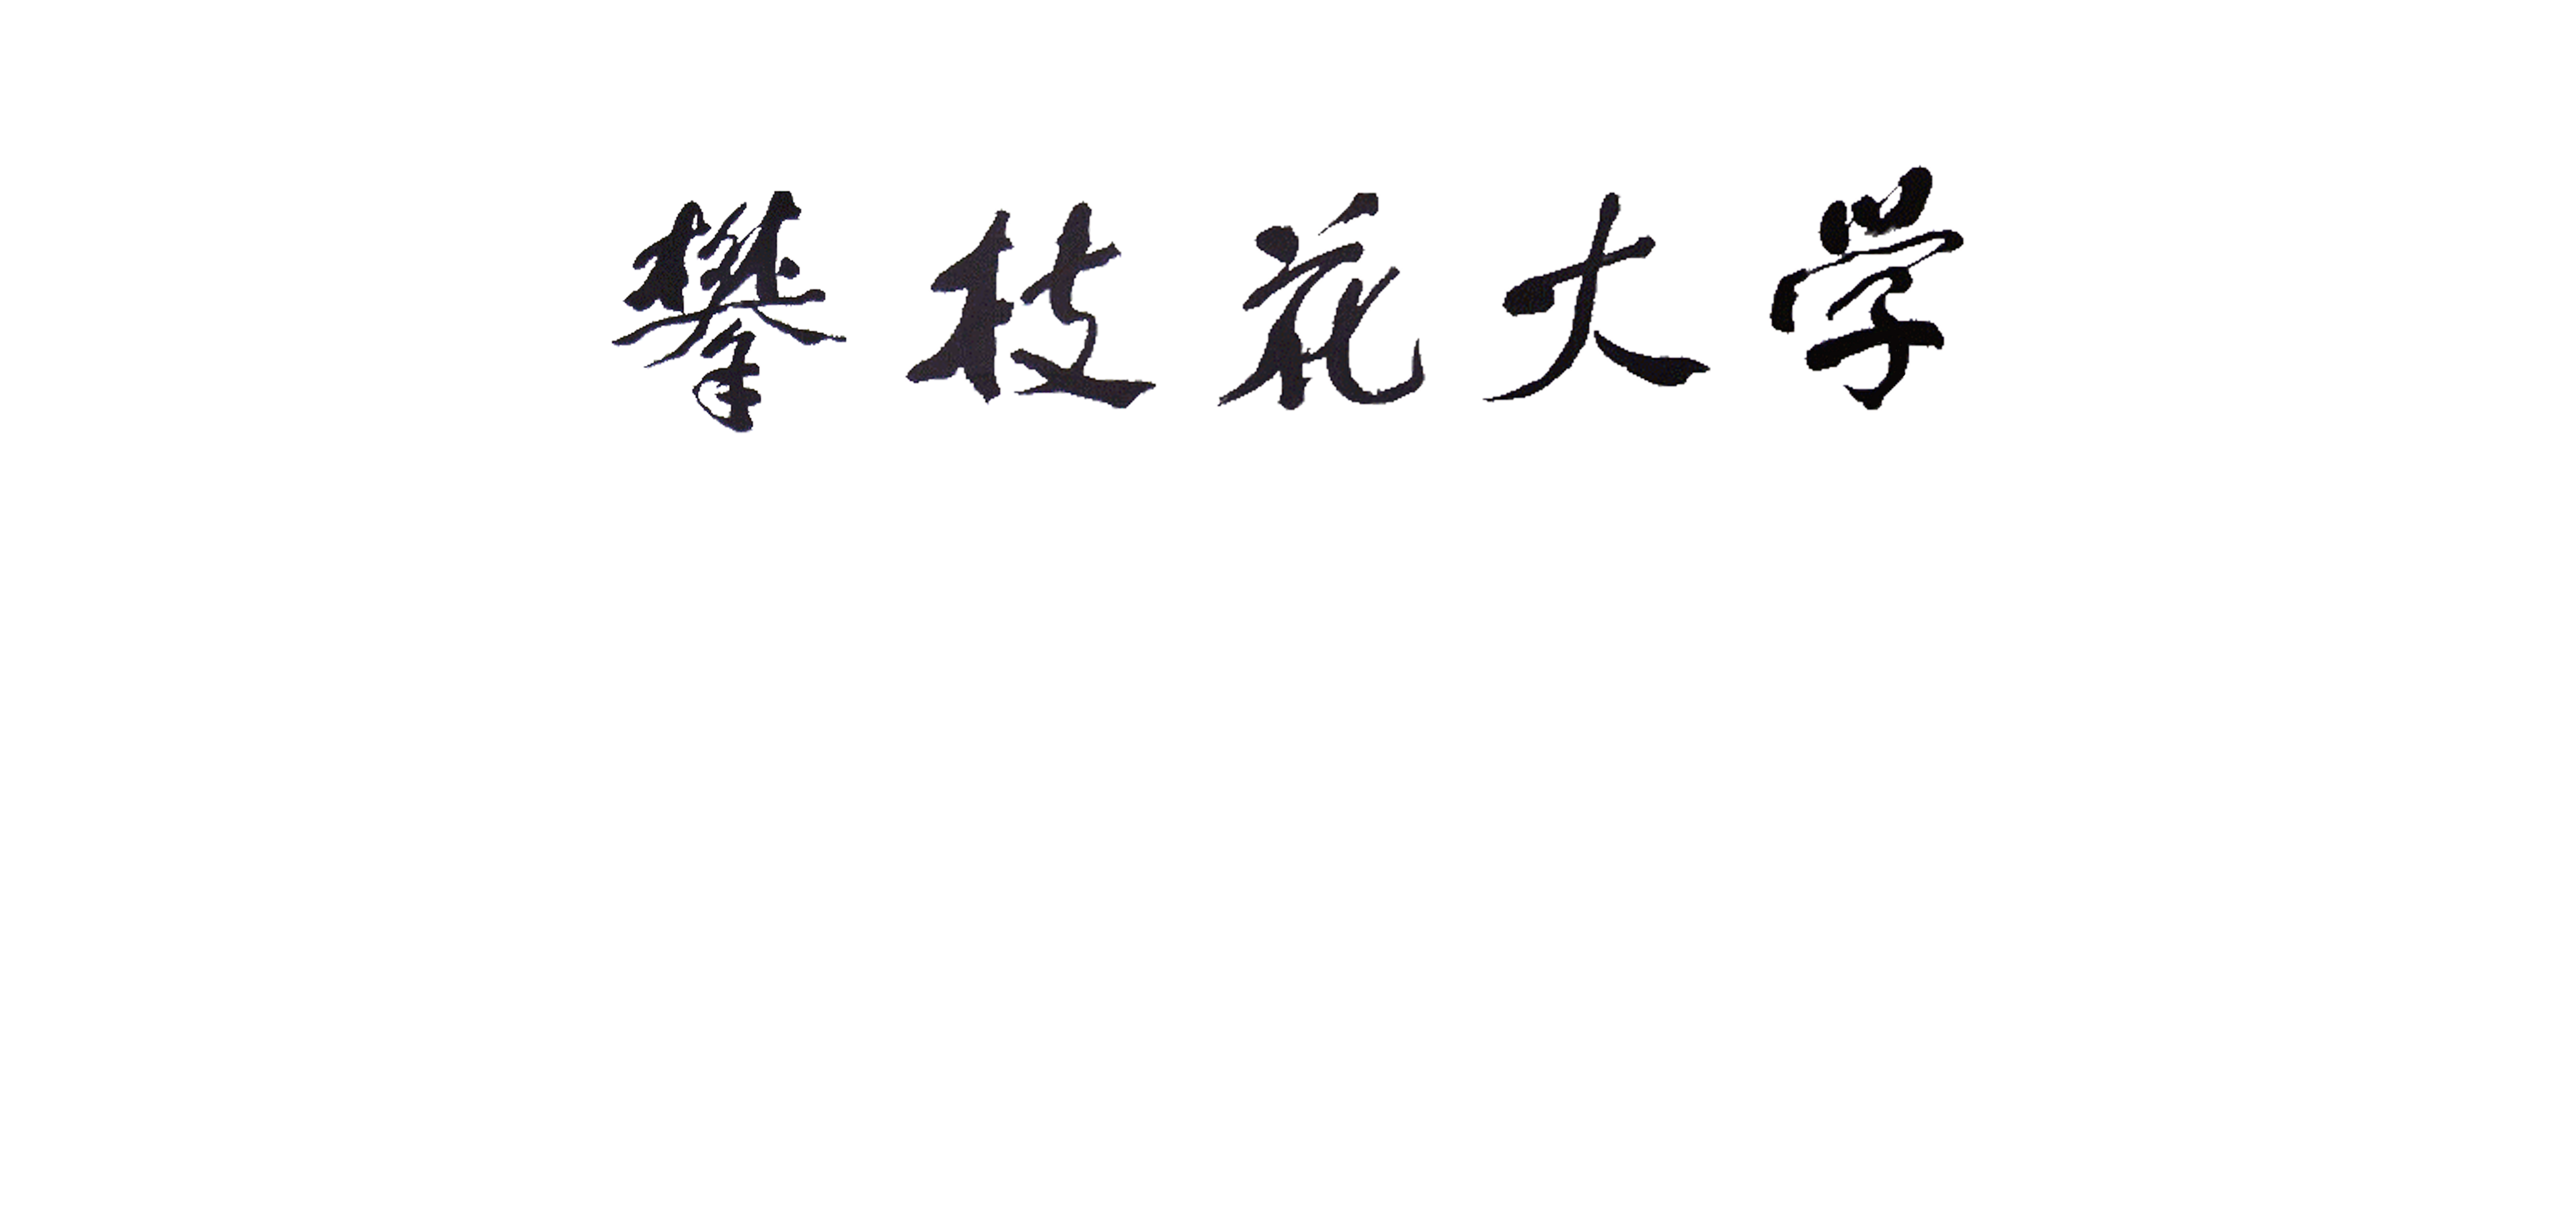 攀枝花大学